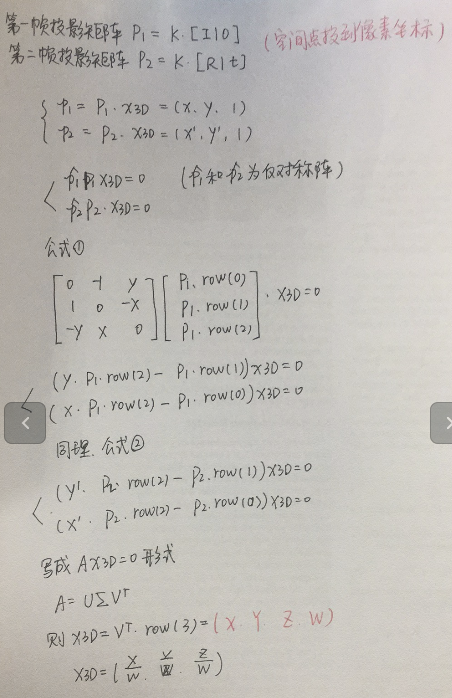 第一帧投影矩阵 P₁ = K·[I|0] (空间点投到像素坐标)
第二帧投影矩阵 P₂ = K·[R|t]
p₁ = P₁·X3D = (X, Y, 1)
p₂ = P₂·X3D = (X', Y', 1)
p̂₁P₁X3D=0 (p̂₁和p̂₂为反对称阵)
p̂₂P₂·X3D=0
公式①
[0 -1 Y] [P₁.row(0)]
[1 0 -X] [P₁.row(1)] · X3D=0
[-Y X 0] [P₁.row(2)]
(Y·P₁·row(2) - P₁·row(1))X3D=0
(X·P₁·row(2) - P₁·row(0))X3D=0
同理. 公式②
(Y'·P₂·row(2) - P₂.row(1))X3D=0
(X'·P₂.row(2) - P₂.row(0))X3D=0
写成 AX3D=0 形式
A = UΣVᵀ
则 X3D=Vᵀ·row(3)=(X. Y. Z. W)
X3D=(X/W. Y/W. Z/W)